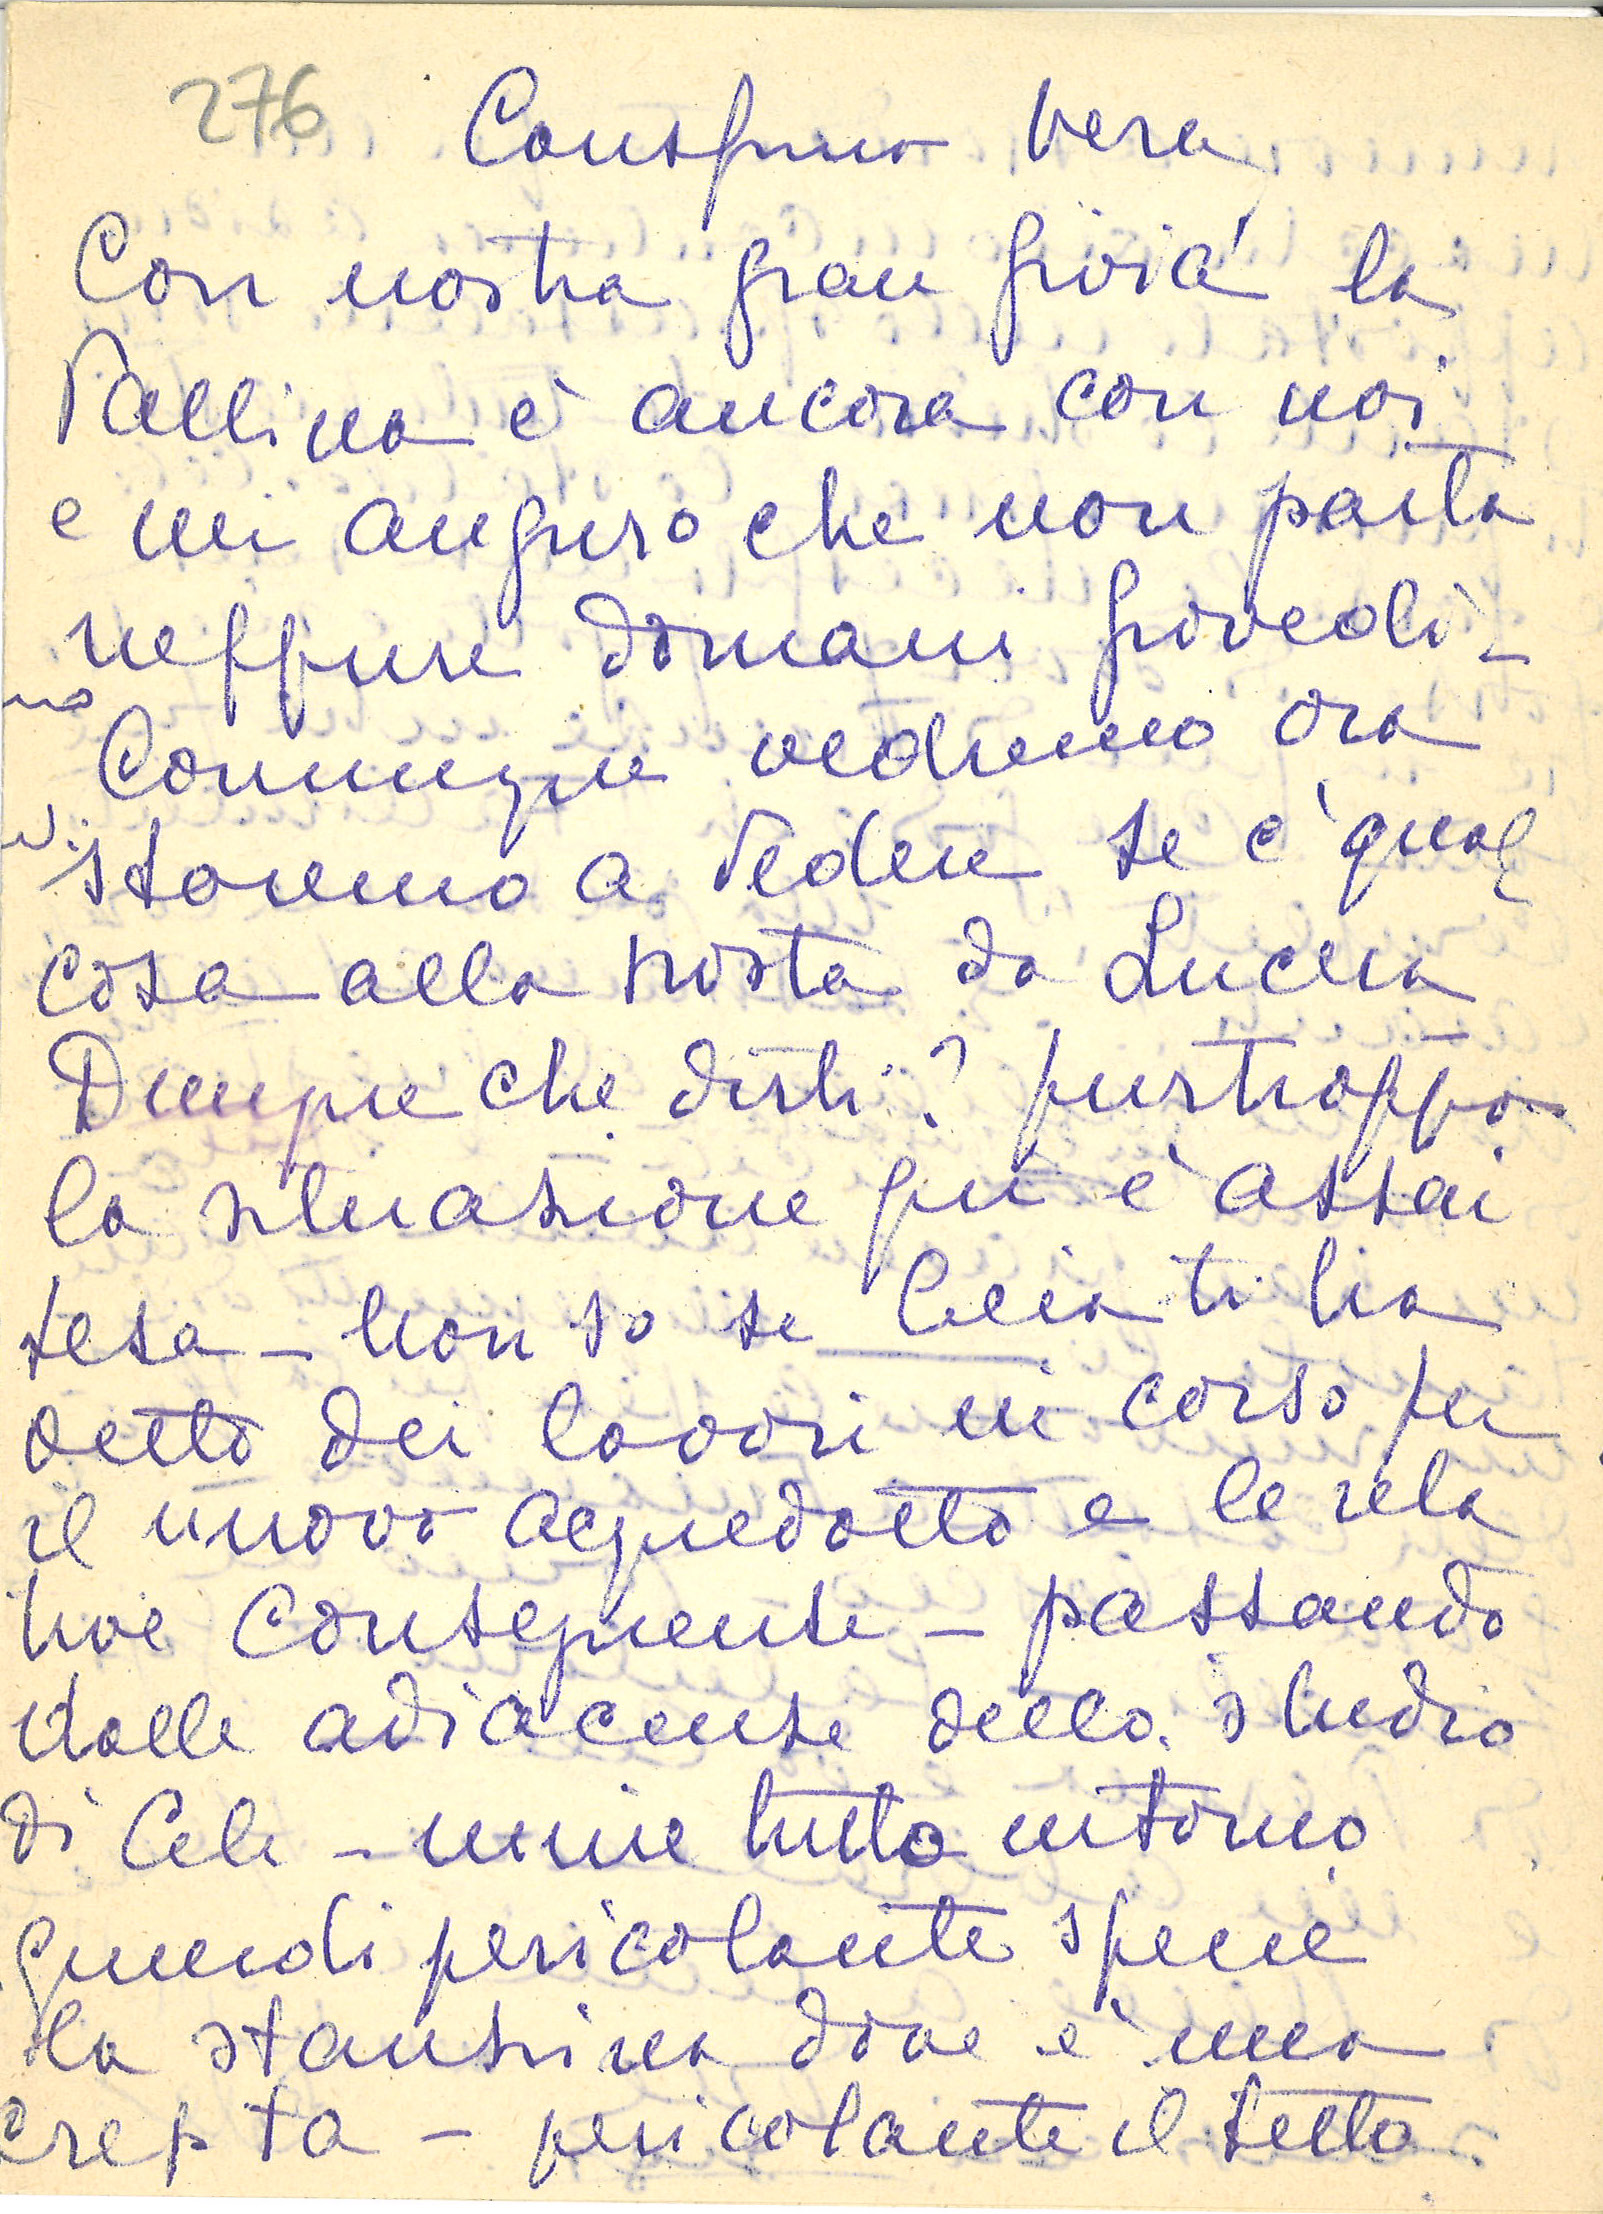 276
Carissima Vera
Con nostra gran gioia la
Pallina è ancora con noi
e mi auguro che non parta
neppure domani giovedì -
Comunque vedremo ora
staremo a vedere se c'è qual
cosa alla posta da Lucera
Dunque che dirti? purtroppo
la situazione qui è assai
tesa - non so se ti ha
detto dei lavori in corso per
il nuovo acquedotto e le rela
tive conseguenze - passando
dalle adiacenze dello studio
di Cele - mine tutto intorno
quindi pericolante specie
la stanzina dove è una
crepta - pericolante il tetto